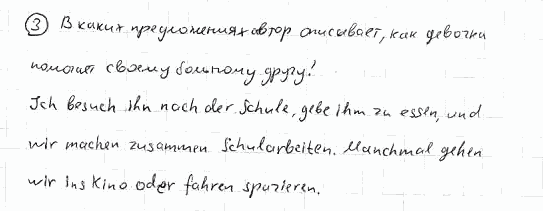 ③ В каких предложениях автор описывает, как девочка
помогает своему больному другу?
Ich besuch ihn nach der Schule, gebe ihm zu essen, und
wir machen zusammen Schularbeiten. Manchmal gehen
wir ins Kino oder fahren spazieren.